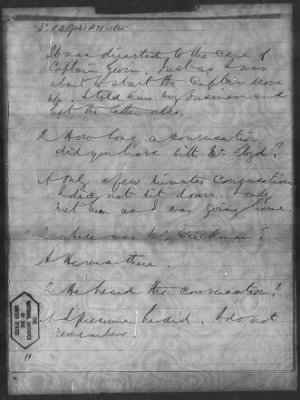 It was directed to the care of
Captain Gwinn. Just as I was
about to start the Captain drove
up. I told him my business and
left the letter also.
Q How long a conversation
did you have with Mr Lloyd?
A Only a few minutes conversation
I did not sit down. I only
met him as I was going home.
Q where was Mr Weichman?
A He was there.
Q He heard the conversation?
A I presume he did. I do not
remember.
11